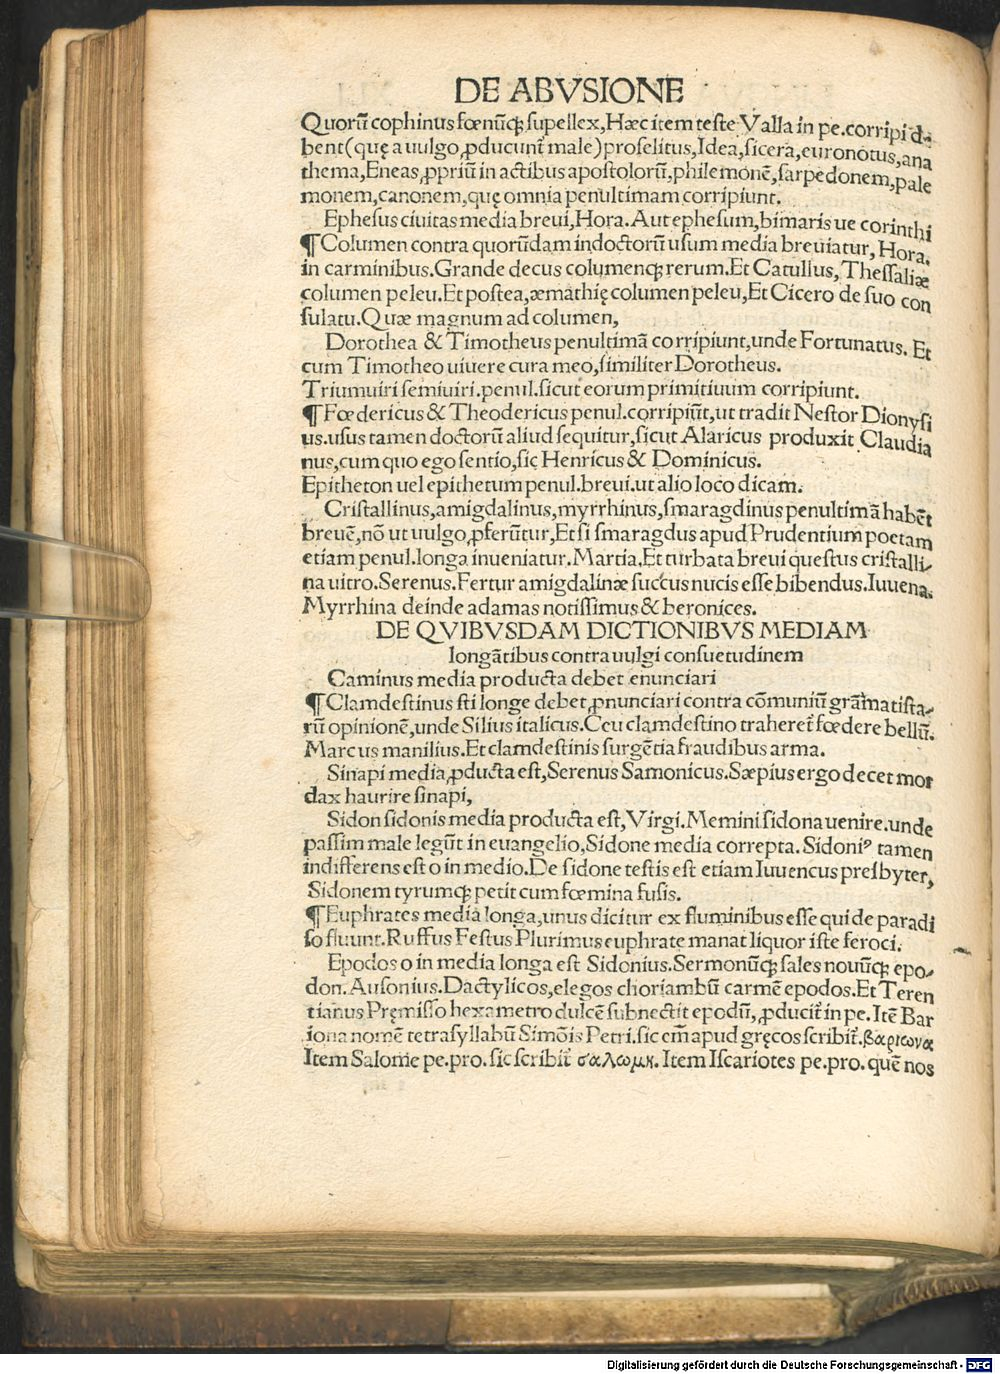 DE ABVSIONE
Quorũ cophinus fœnũq; supellex, Hæc item teste Valla in pe. corripi de-
bent (quę a uulgo ꝓducunt̃ male) proselitus, Idea, sicera, euronotus, ana
thema, Eneas, ꝓpriũ in actibus apostolorũ, philemonẽ, sarpedonem, pale
monem, canonem, quę omnia penultimam corripiunt.
Ephesus ciuitas media breui, Hora. Aut ephesum, bimaris ue corinthi
¶ Columen contra quorũdam indoctorũ usum media breuiatur, Hora.
in carminibus. Grande decus columenq; rerum. Et Catullus, Thessaliæ
columen peleu. Et postea, æmathię columen peleu, Et Cicero de suo con
sulatu. Quæ magnum ad columen,
Dorothea & Timotheus penultimã corripiunt, unde Fortunatus. Et
cum Timotheo uiuere cura meo, similiter Dorotheus.
Triumuiri semiuiri. penul. sicut eorum primitiuum corripiunt.
¶ Fœdericus & Theodericus penul. corripiũt, ut tradit Nestor Dionysi
us. usus tamen doctorũ aliud sequitur, sicut Alaricus produxit Claudia
nus, cum quo ego sentio, sic Henricus & Dominicus.
Epitheton uel epithetum penul. breui. ut alio loco dicam.
Cristallinus, amigdalinus, myrrhinus, smaragdinus penultimã habẽt
breuẽ, nõ ut uulgo, ꝓferũtur, Etsi smaragdus apud Prudentium poetam
etiam penul. longa inueniatur. Martia. Et turbata breui questus cristalli-
na uitro. Serenus. Fertur amigdalinæ succus nucis esse bibendus. Iuuena.
Myrrhina deinde adamas notissimus & beronices.
DE QVIBVSDAM DICTIONIBVS MEDIAM
longãtibus contra uulgi consuetudinem
Caminus media producta debet enunciari
¶ Clamdestinus sti longe debet, ꝓnunciari contra cõmuniũ grãmatista-
rũ opinionẽ, unde Silius italicus. Ceu clamdestino traheret̃ fœdere bellũ.
Marcus manilius. Et clamdestinis surgẽtia fraudibus arma.
Sinapi media, ꝓducta est, Serenus Samonicus. Sæpius ergo decet mor
dax haurire sinapi,
Sidon sidonis media producta est, Virgi. Memini sidona uenire. unde
passim male legũt in euangelio, Sidone media correpta. Sidoniꝰ tamen
indifferens est o in medio. De sidone testis est etiam Iuuencus presbyter,
Sidonem tyrumq; petit cum fœmina fusis.
¶ Euphrates media longa, unus dicitur ex fluminibus esse qui de paradi
so fluunt. Ruffus Festus Plurimus euphrate manat liquor iste feroci.
Epodos o in media longa est Sidonius. Sermonũq; sales nouũq; epo-
don. Ausonius. Dactylicos, elegos choriambũ carmẽ epodos. Et Teren
tianus Pręmisso hexametro dulcẽ subnectit epodũ, ꝓducit̃ in pe. Itẽ Bar
iona nomẽ tetrasyllabũ Simõis Petri. sic em̃ apud gręcos scribit̃. βαριωνα
Item Salome pe. pro. sic scribit̃ σαλωμη. Item Iscariotes pe. pro. quẽ nos
Digitalisierung gefördert durch die Deutsche Forschungsgemeinschaft - DFG